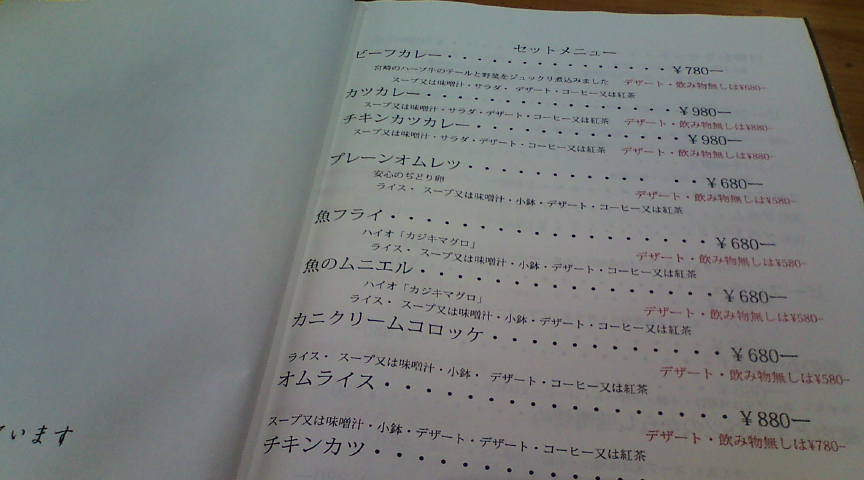 セットメニュー
ビーフカレー・・・・・・・・・・・・・・・・￥780ー
宮崎のハーブ牛のテールと野菜をジュックリ煮込みました デザート・飲み物無しは¥680-
スープ又は味噌汁・サラダ・デザート・コーヒー又は紅茶
カツカレー・・・・・・・・・・・・・・・・・￥980ー
スープ又は味噌汁・サラダ・デザート・コーヒー又は紅茶 デザート・飲み物無しは¥880-
チキンカツカレー・・・・・・・・・・・・・・￥980ー
スープ又は味噌汁・サラダ・デザート・コーヒー又は紅茶 デザート・飲み物無しは¥880-
プレーンオムレツ・・・・・・・・・・・・・・￥680ー
安心のぢどり卵 デザート・飲み物無しは¥580-
ライス・ スープ又は味噌汁・小鉢・デザート・コーヒー又は紅茶
魚フライ・・・・・・・・・・・・・・・・・・￥680ー
ハイオ「カジキマグロ」 デザート・飲み物無しは¥580-
ライス・ スープ又は味噌汁・小鉢・デザート・コーヒー又は紅茶
魚のムニエル・・・・・・・・・・・・・・・・￥680ー
ハイオ「カジキマグロ」 デザート・飲み物無しは¥580-
ライス・ スープ又は味噌汁・小鉢・デザート・コーヒー又は紅茶
カニクリームコロッケ・・・・・・・・・・・・￥680ー
デザート・飲み物無しは¥580-
ライス・ スープ又は味噌汁・小鉢・ デザート・コーヒー又は紅茶
オムライス・・・・・・・・・・・・・・・・・￥880ー
デザート・飲み物無しは¥780-
スープ又は味噌汁・小鉢・デザート・デザート・コーヒー又は紅茶
チキンカツ・・・・・・・・・・・・
います